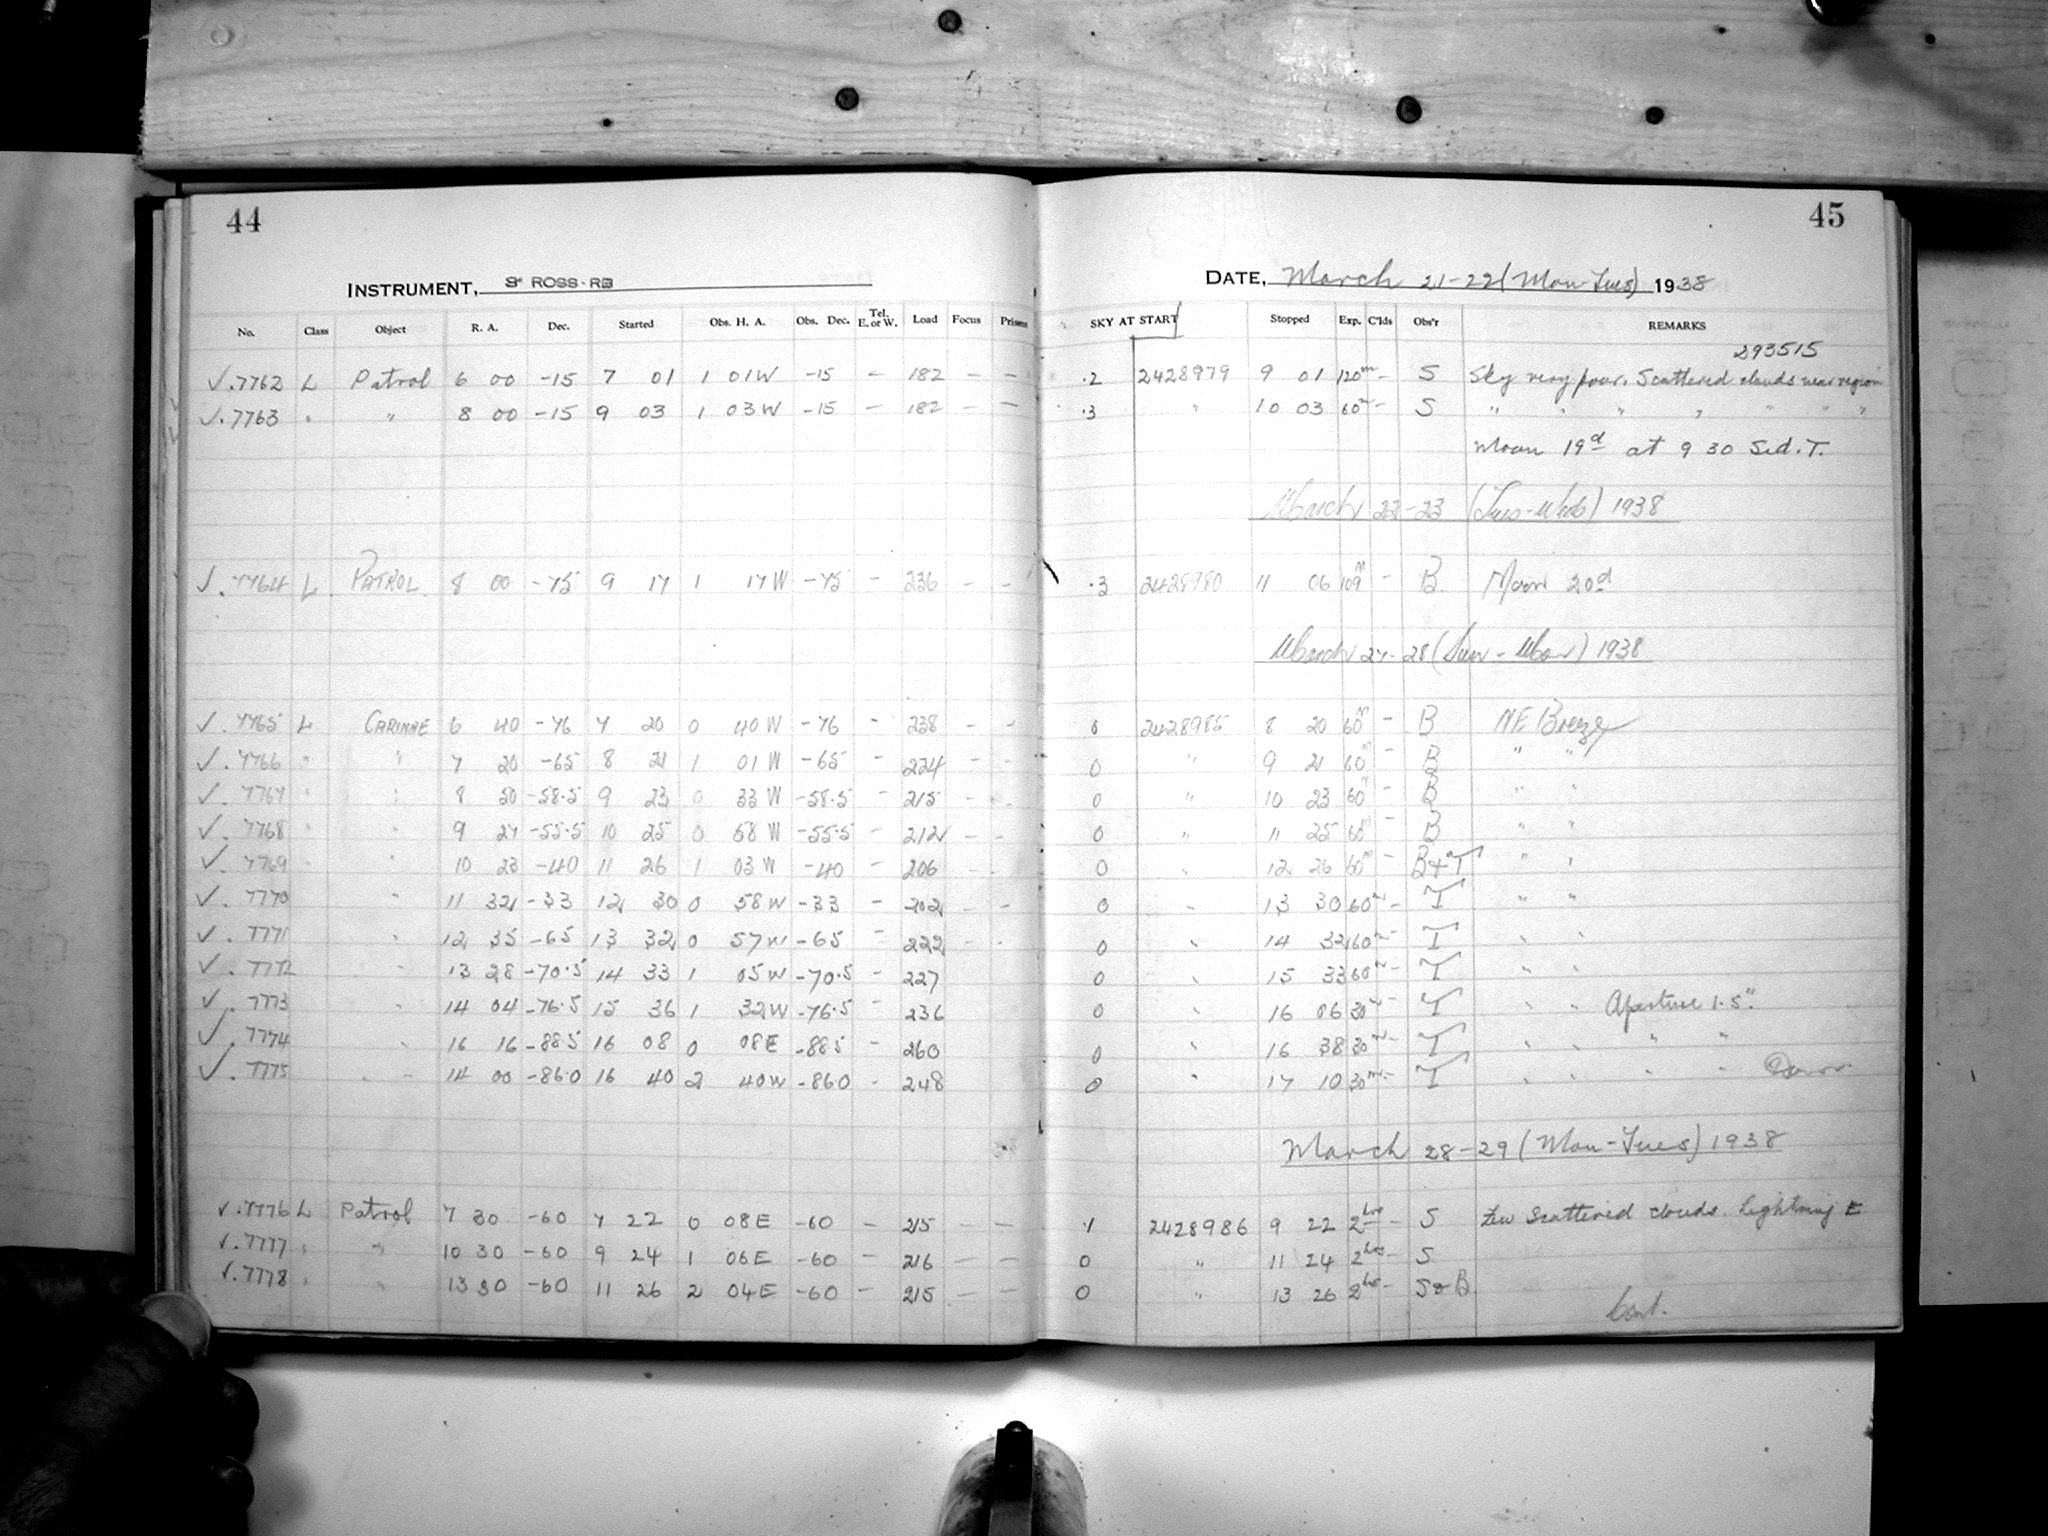 44
INSTRUMENT, 3" ROSS-RB
No. Class Object R. A. Dec. Started Obs. H. A. Obs. Dec. Tel. E. or W. Load Focus Prisms
√.7762 L Patrol 6 00 -15 7 01 1 01W -15 — 182 — —
√.7763 " " 8 00 -15 9 03 1 03W -15 — 182 — —
√.7764 L PATROL. 8 00 -75 9 17 1 17W -75 - 236 - -
√.7765 L CARINAE 6 40 -76 7 20 0 40W -76 - 238 - -
√.7766 " " 7 20 -65 8 21 1 01W -65 - 224 - -
√.7767 " " 8 50 -58.5 9 23 0 33W -58.5 - 215 - -
√.7768 " " 9 27 -55.5 10 25 0 58W -55.5 - 212 - -
√.7769 " " 10 23 -40 11 26 1 03W -40 - 206 - -
√.7770 " 11 32 -33 12 30 0 58W -33 - 202 - -
√.7771 " 12 35 -65 13 32 0 57W -65 - 222 - -
√.7772 13 28 -70.5 14 33 1 05W -70.5 - 227
√.7773 " 14 04 -76.5 15 36 1 32W -76.5 - 236
√.7774 " 16 16 -88.5 16 08 0 08E -88.5 - 260
√.7775 " " 14 00 -86.0 16 40 2 40W -86.0 - 248
√.7776 L Patrol 7 30 -60 7 22 0 08E -60 — 215 — —
√.7777 " " 10 30 -60 9 24 1 06E -60 — 216 — —
√.7778 " " 13 30 -60 11 26 2 04E -60 — 215 — —
45
DATE, March 21-22 (Mon-Tues) 1938
SKY AT START Stopped Exp. C'lds Obs'r REMARKS
293515
.2 2428979 9 01 120m - S Sky very poor. Scattered clouds near region
.3 " 10 03 60m - S " " " " " " "
Moon 19d at 9 30 Sid. T.
March 22-23 (Tues-Wed) 1938
.3 2428980 11 06 109m - B. Moon 20d
March 27-28 (Sun-Mon) 1938
0 2428985 8 20 60m - B NE Breeze
0 " 9 21 60m - B " "
0 " 10 23 60m - B " "
0 " 11 25 60m - B " "
0 " 12 26 60m - B+T " "
0 " 13 30 60m - T " "
0 " 14 32 60m - T " "
0 " 15 33 60m - T " "
0 " 16 06 30m - T " " Aperture 1.5"
0 " 16 38 30m - T " " " "
0 " 17 10 30m - T " " " "
March 28-29 (Mon-Tues) 1938
.1 2428986 9 22 2hrs - S Few scattered clouds. Lightning E
0 " 11 24 2hrs - S
0 " 13 26 2hrs - S & B
Cont.